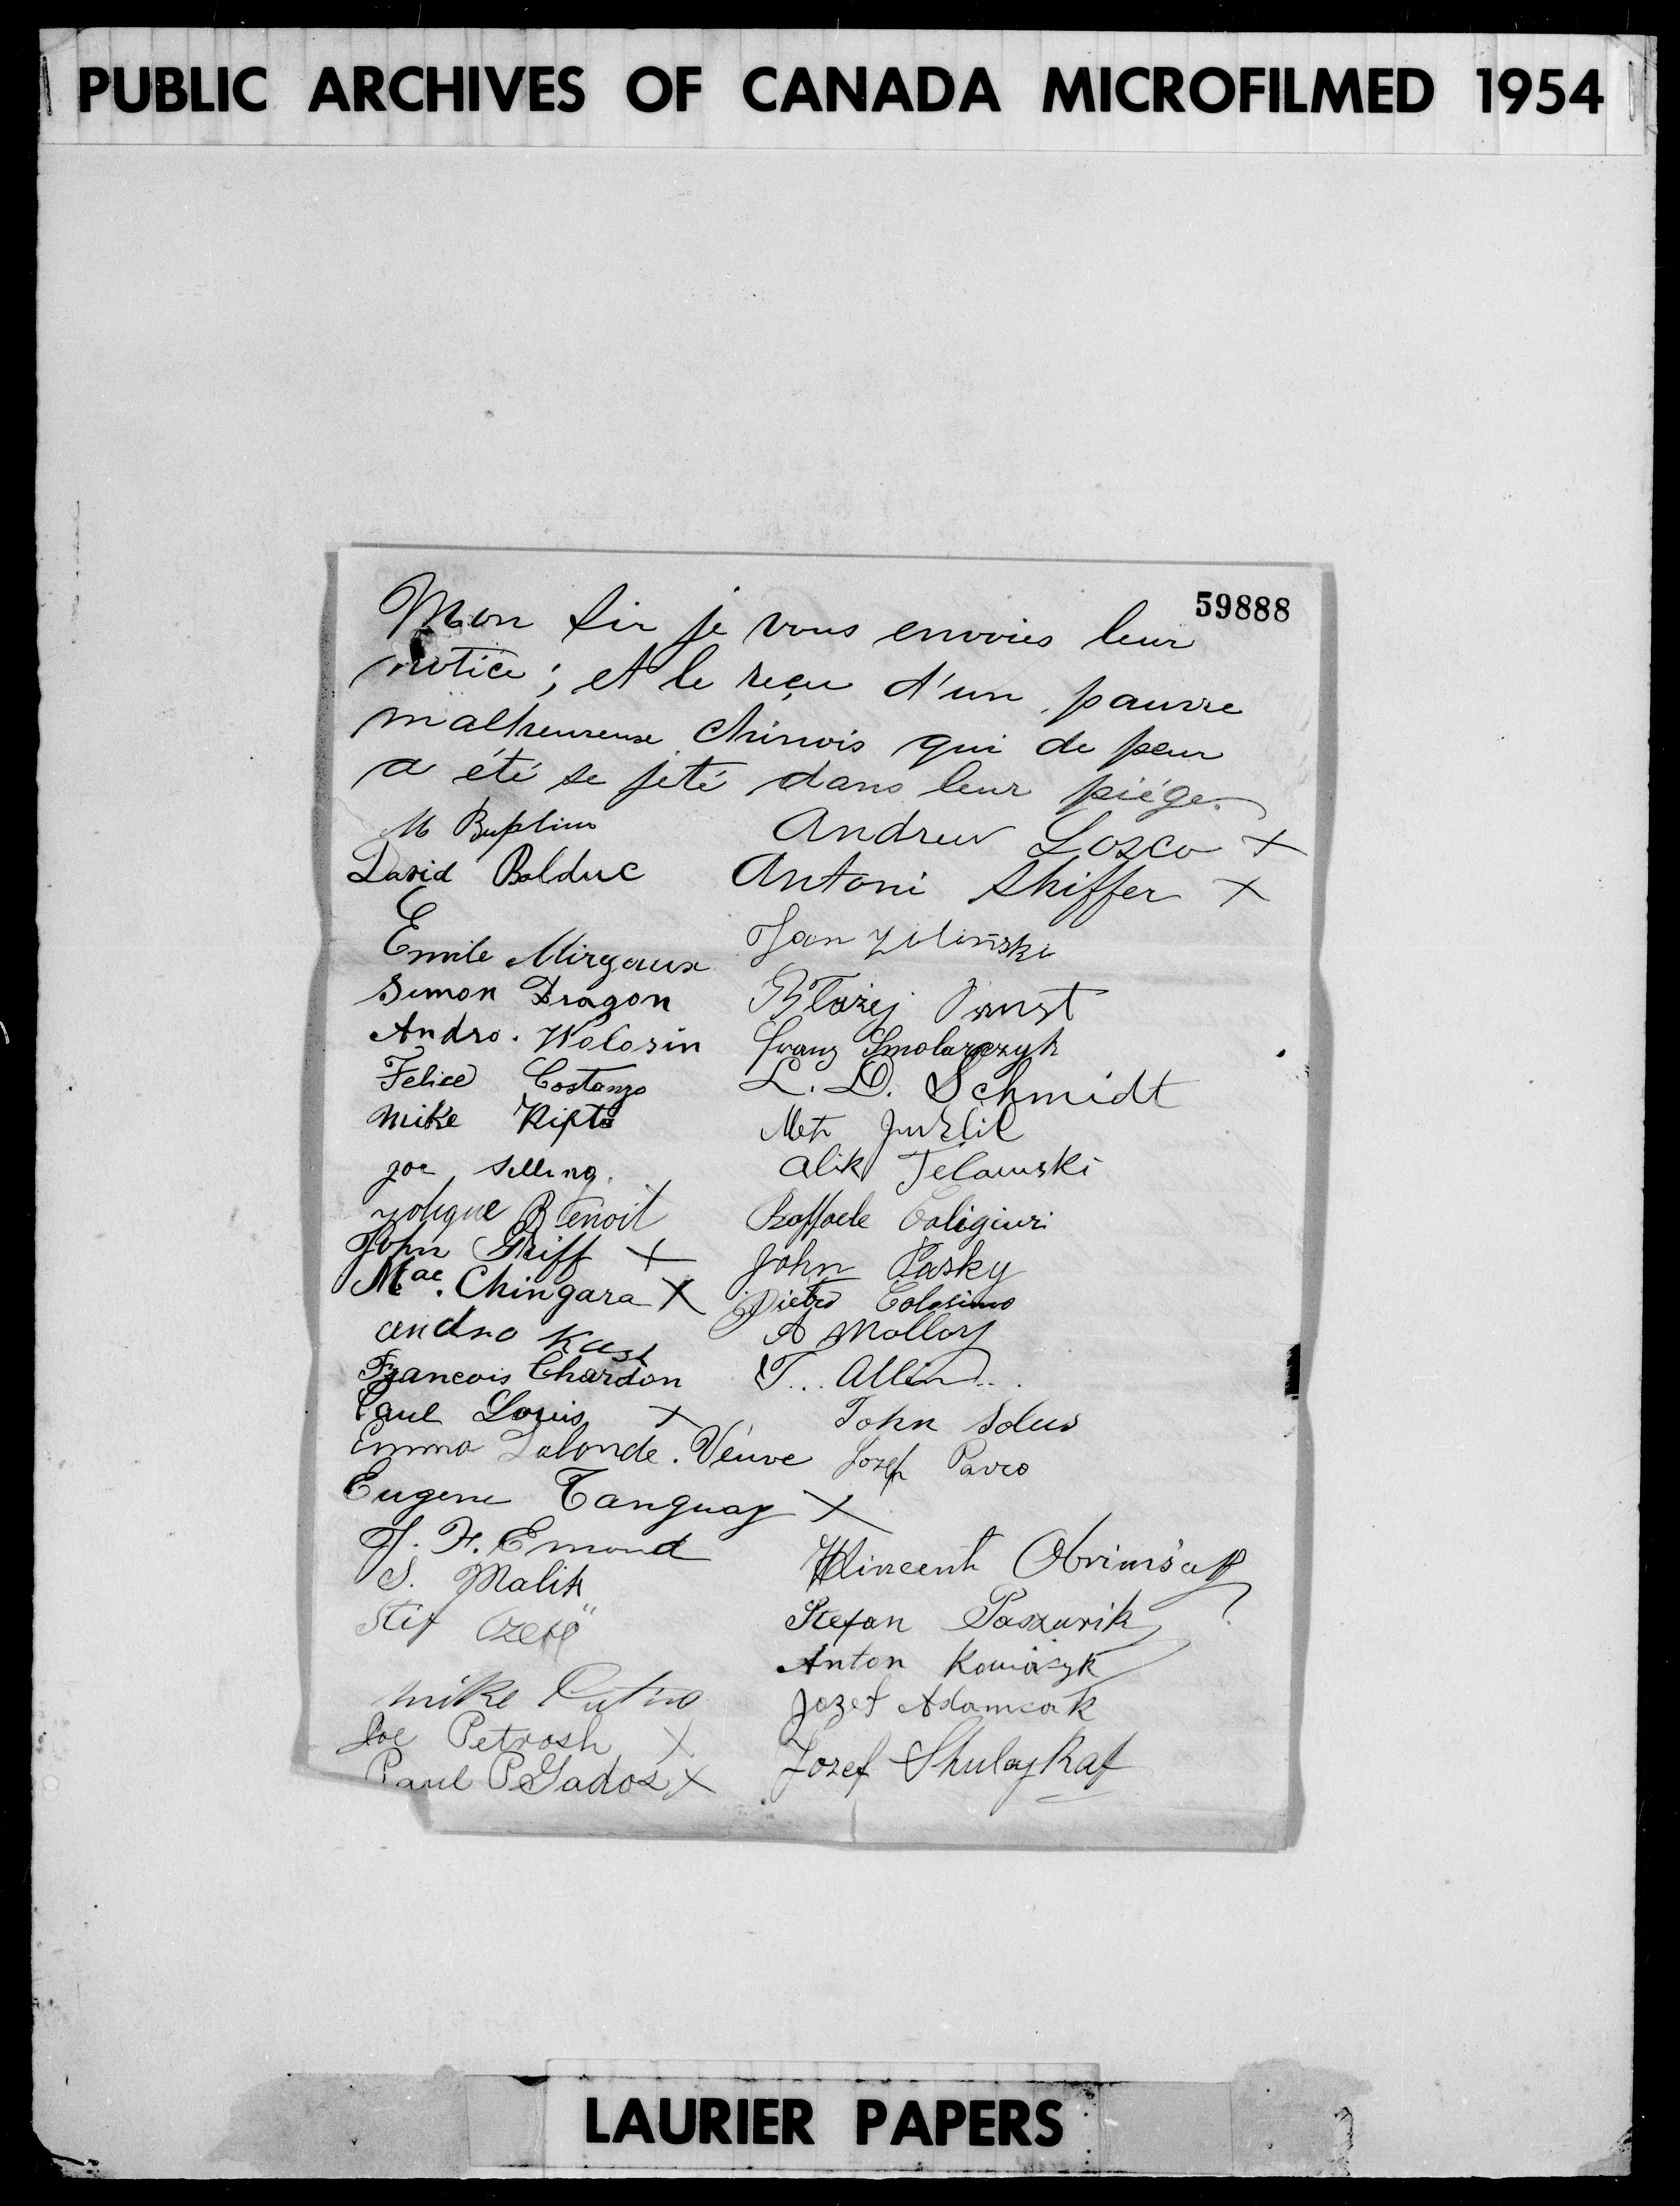 PUBLIC ARCHIVES OF CANADA MICROFILMED 1954
59888
Mon Sir je vous envoies leur
notice; et le reçu d'un pauvre
malheureuse Chinois qui de peur
a été se jeté dans leur piége.
M
David Bolduc
Emile Mirgaux
Simon Dragon
Andro. Wolosin
Felice Costanzo
Mike Kipta
Joe Selling.
Benoit
John Griff X
Mae. Chingara X
andro Kast
Francois Chardon
Paul Louis X
Emma Lalonde. Veuve
Eugene Tanguay X
J. F. Emond
S. Malik
Stif
mike
Joe Petrosh X
Paul PGados X
Andrew Losco X
Antoni Shiffer X
Jan Zilinski
Błazej
Franz Smolarczyk
L. D. Schmidt
Alik Telawski
Raffaele Caligiuri
John Pasky
Pietro Colosimo
A Molloy
T... Allen...
John Solus
Jozef Pavco
Wincent
Stefan Paszurik
Anton Kowaszyk
Jozef Adamcak
Jozef
LAURIER PAPERS